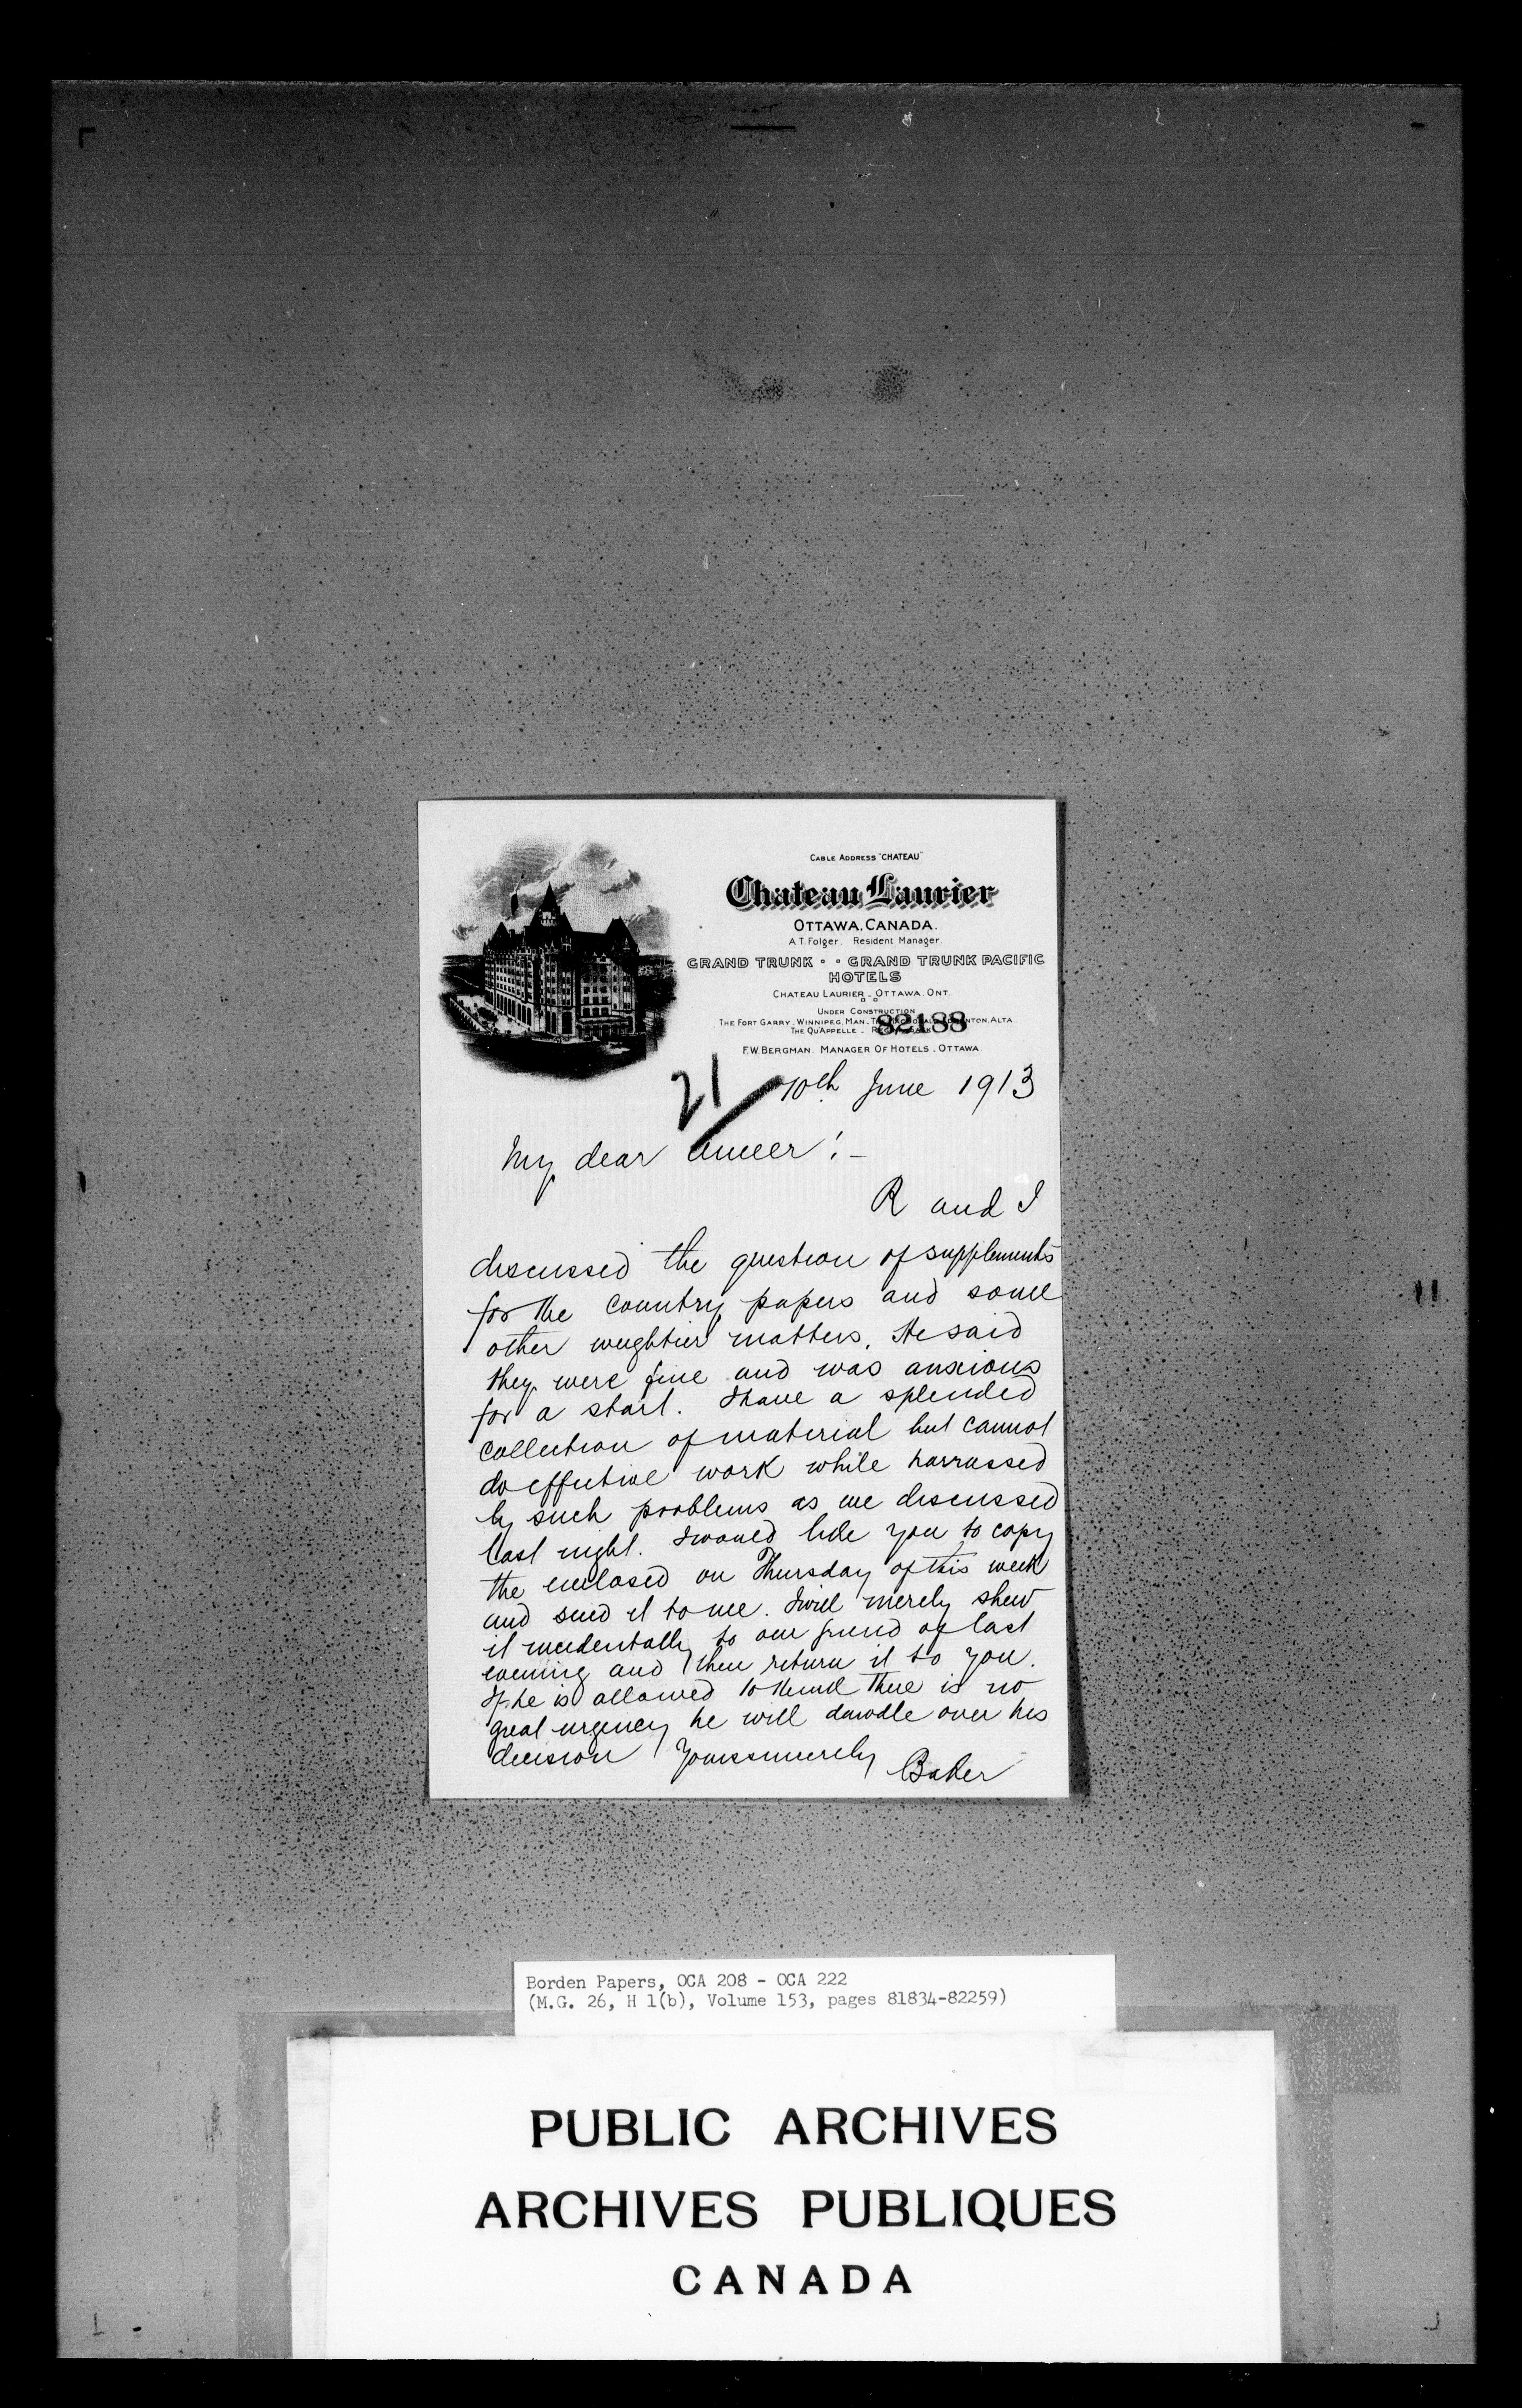 CABLE ADDRESS "CHATEAU"
Chateau Laurier
OTTAWA, CANADA.
A.T. Folger. Resident Manager.
GRAND TRUNK - - GRAND TRUNK PACIFIC
HOTELS
CHATEAU LAURIER - OTTAWA. ONT.
UNDER CONSTRUCTION
THE FORT GARRY - WINNIPEG, MAN - ALTA
THE QU'APPELLE -
82188
F.W. BERGMAN. MANAGER OF HOTELS - OTTAWA
21
10th June 1913
My dear Ameer! -
R and I
discussed the question of supplements
for the country papers and some
other weightier matters. He said
they were fine and was anxious
for a start. I have a splended
collection of material but cannot
do effective work while harrassed
by such problems as we discussed
last night. I would like you to copy
the enclosed on Thursday of this week
and send it to me. I will merely shew
it incidentally to our friend of last
evening and then return it to you.
If he is allowed to think there is no
great urgency he will dawdle over his
decision Yours sincerely Baker
Borden Papers, OCA 208 - OCA 222
(M.G. 26, H 1(b), Volume 153, pages 81834-82259)
PUBLIC ARCHIVES
ARCHIVES PUBLIQUES
CANADA